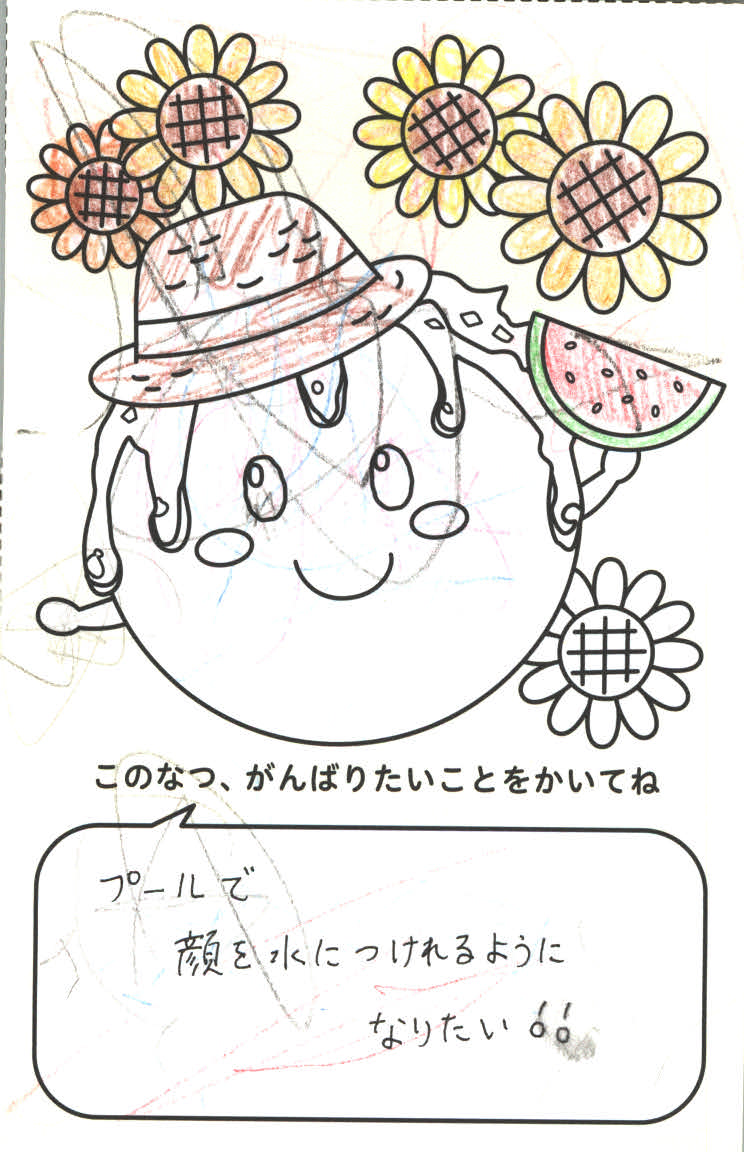 このなつ、がんばりたいことをかいてね
プールで
顔を水につけれるように
なりたい!!